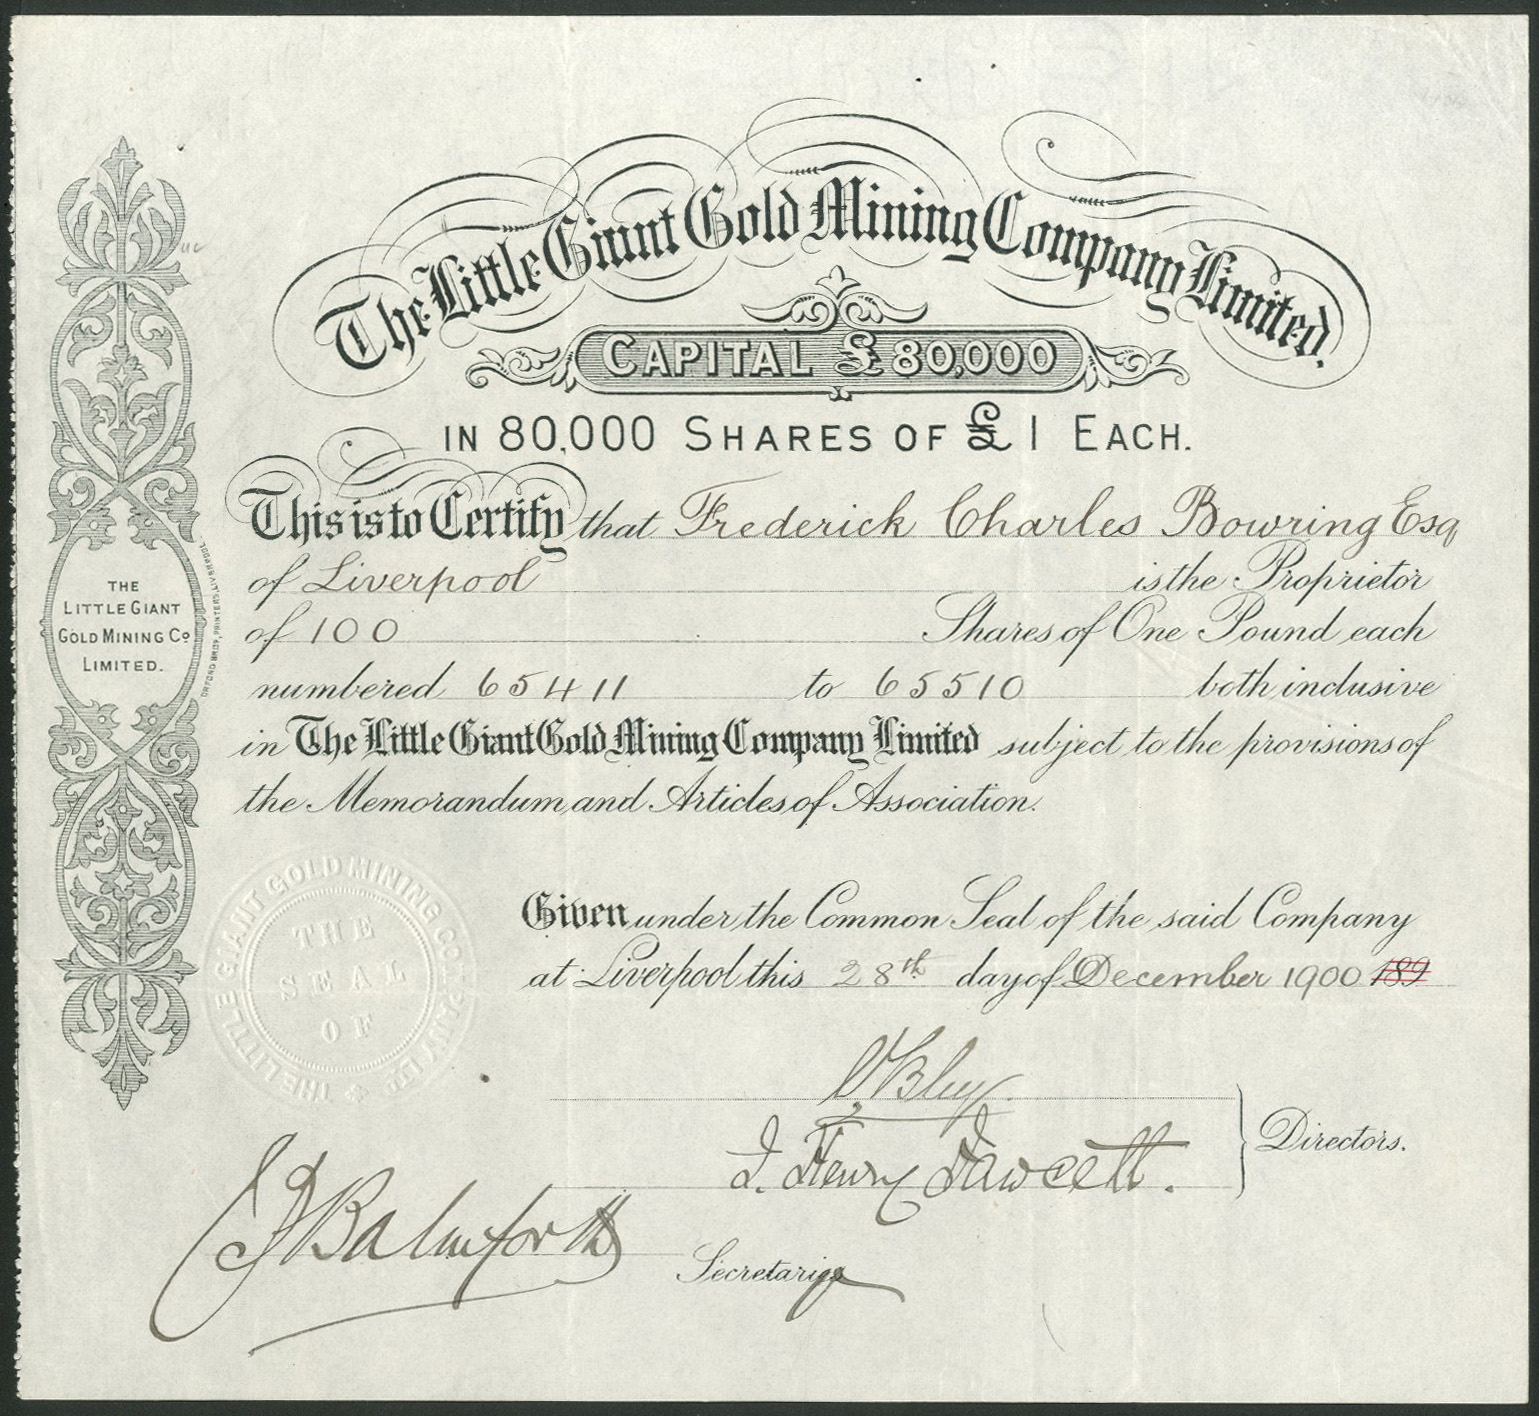 The Little Giant Gold Mining Company Limited.
CAPITAL £80,000
IN 80,000 SHARES OF £1 EACH.
This is to Certify that Frederick Charles Bowring Esq
of Liverpool is the Proprietor
of 100 Shares of One Pound each
numbered 65411 to 65510 both inclusive
in The Little Giant Gold Mining Company Limited subject to the provisions of
the Memorandum and Articles of Association.
Given under the Common Seal of the said Company
at Liverpool this 28th day of December 1900 189
J. Henry Fawcett.
Directors.
Balmforth
THE
LITTLE GIANT
GOLD MINING Co
LIMITED.
PRINTERS, LIVERPOOL.
THE LITTLE GIANT GOLD MINING COMPANY LTD
THE
SEAL
OF